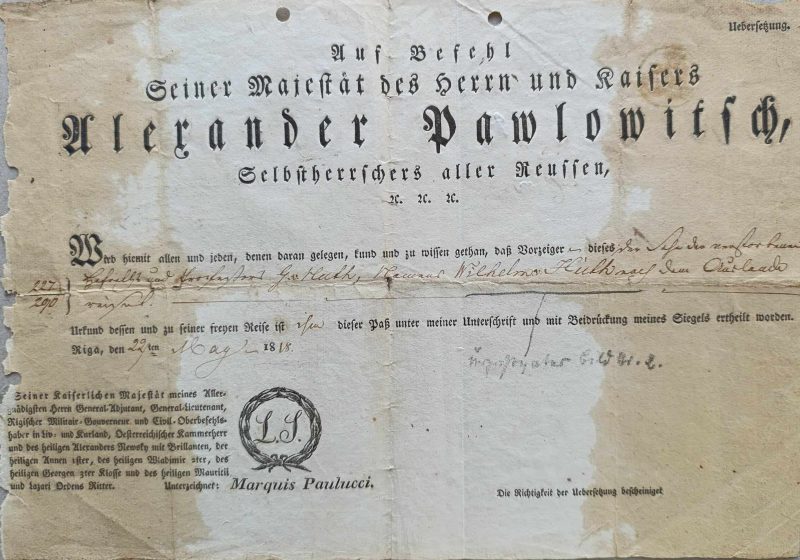 Uebersetzung.
Auf Befehl
Seiner Majestät des Herrn und Kaisers
Alexander Pawlowitsch,
Selbstherrschers aller Reussen,
ꝛc. ꝛc. ꝛc.
Wird hiemit allen und jeden, denen daran gelegen, kund und zu wissen gethan, daß Vorzeiger dieses der Sohn des verstorbenen
227. Hofraths und Professors Huth, Namens Wilhelm Huth nach dem Auslande
290 reiset.
Urkund dessen und zu seiner freyen Reise ist ihm dieser Paß unter meiner Unterschrift und mit Beidrückung meines Siegels ertheilt worden.
Riga, den 22ten May 1818.
Bild Nr. 2.
Seiner Kaiserlichen Majestät meines Aller-
gnädigsten Herrn General-Adjutant, General-Lieutenant,
Rigischer Militair-Gouverneur und Civil-Oberbefehls-
haber in Liv- und Kurland, Oesterreichischer Kammerherr
und des heiligen Alexanders Newsky mit Brillanten, der
heiligen Annen 1ster, des heiligen Wladimir 2ter, des
heiligen Georgen 3ter Klasse und des heiligen Mauritii
und Lazari Ordens Ritter. Unterzeichnet: Marquis Paulucci.
L. S.
Die Richtigkeit der Uebersetzung bescheiniget